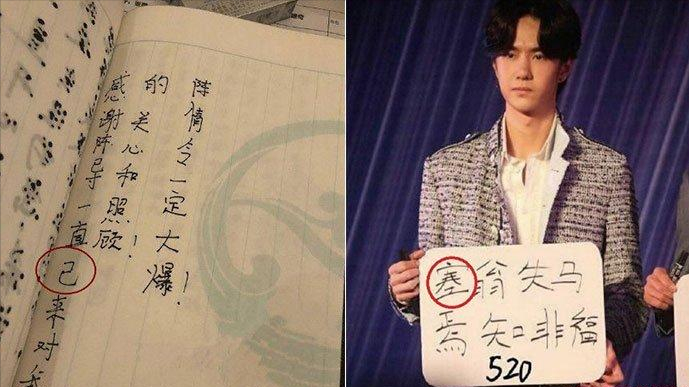 感谢陈导一直己来对我
的关心和照顾!
陈情令一定大爆!
塞翁失马
焉知非福
520